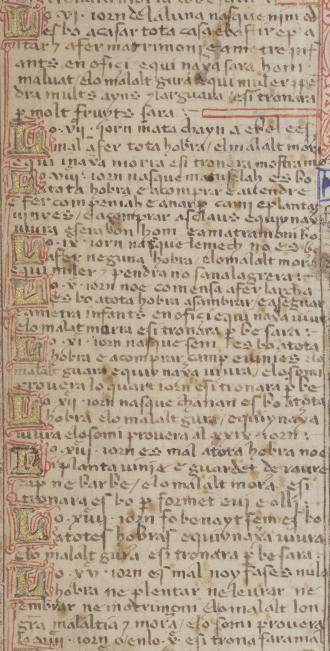 Lo .vi. jorn de la luna nasque nimrod
es bo a casar tota casa e bastir e p a
ntar y a fer matrimoni e ametre inf
ants en ofici e qui naxa sara hom
maluat e lo malalt gura e qui muler pen
dra mults ayns y larguara e si tronara
p molt fruyts sara :
Lo .vii. jorn mata chayn a ebel e es
mal a fer tota hobra / e lo malalt mora
e qui inaxa moria e si tronera
Lo .viii. jorn nasque es bo
tota hobra e a comprar e a uendre
e fer companiah e anar p cami e plantar
vinyes / e a comprar asclaus e qui y naxa
viura e sera bon hom e a matramoni bo
Lo .ix. jorn nasque lemech no es bo
a fer neguna hobra / e lo malalt mora
e qui muler / pendra no sanalagrera :
Lo .x. jorn noe comensa a fer larcha
es bo a tota hobra a sambrar e a seguar
e ametra infants en ofici e qui naxa viura
e lo malat morra e si tronara p be sara :
Lo .xi. jorn nasque sem / es bo a tota
hobra e a comprar camp e vinies e lo
malalt guara e qui y naxa viura / e lo somi
provera lo quart jorn e si tronara p be
Lo .xii. jorn nasque chanan es bo a tota
hobra e lo malalt gura / e qui y naxa
viura e lo somi provera al xxix jorn :
Lo .xiii. jorn es mal a tota hobra noe
planta vinia e guardet de raure
cap ne barbe / e lo malalt mora . e si
tronara es bo p forment e vi e olli :
Lo .xiiii. jorn fo benayt sem es bo
a totes hobras e qui y naxa viura
e lo malalt gura e si tronara p be sara :
Lo .xv. jorn es mal noy fases nula
hobra ne plentar ne leurar ne
sembrar ne e lo malalt lon
gra malaltia y mora / e lo somi provera
lo .xiii. jorn o en lo .v. e si trona fara mal